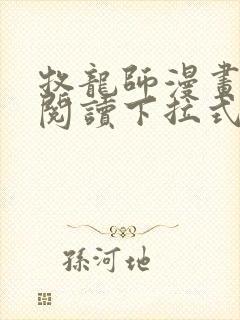 牧龍師漫畫
閱讀下拉式
孫河地